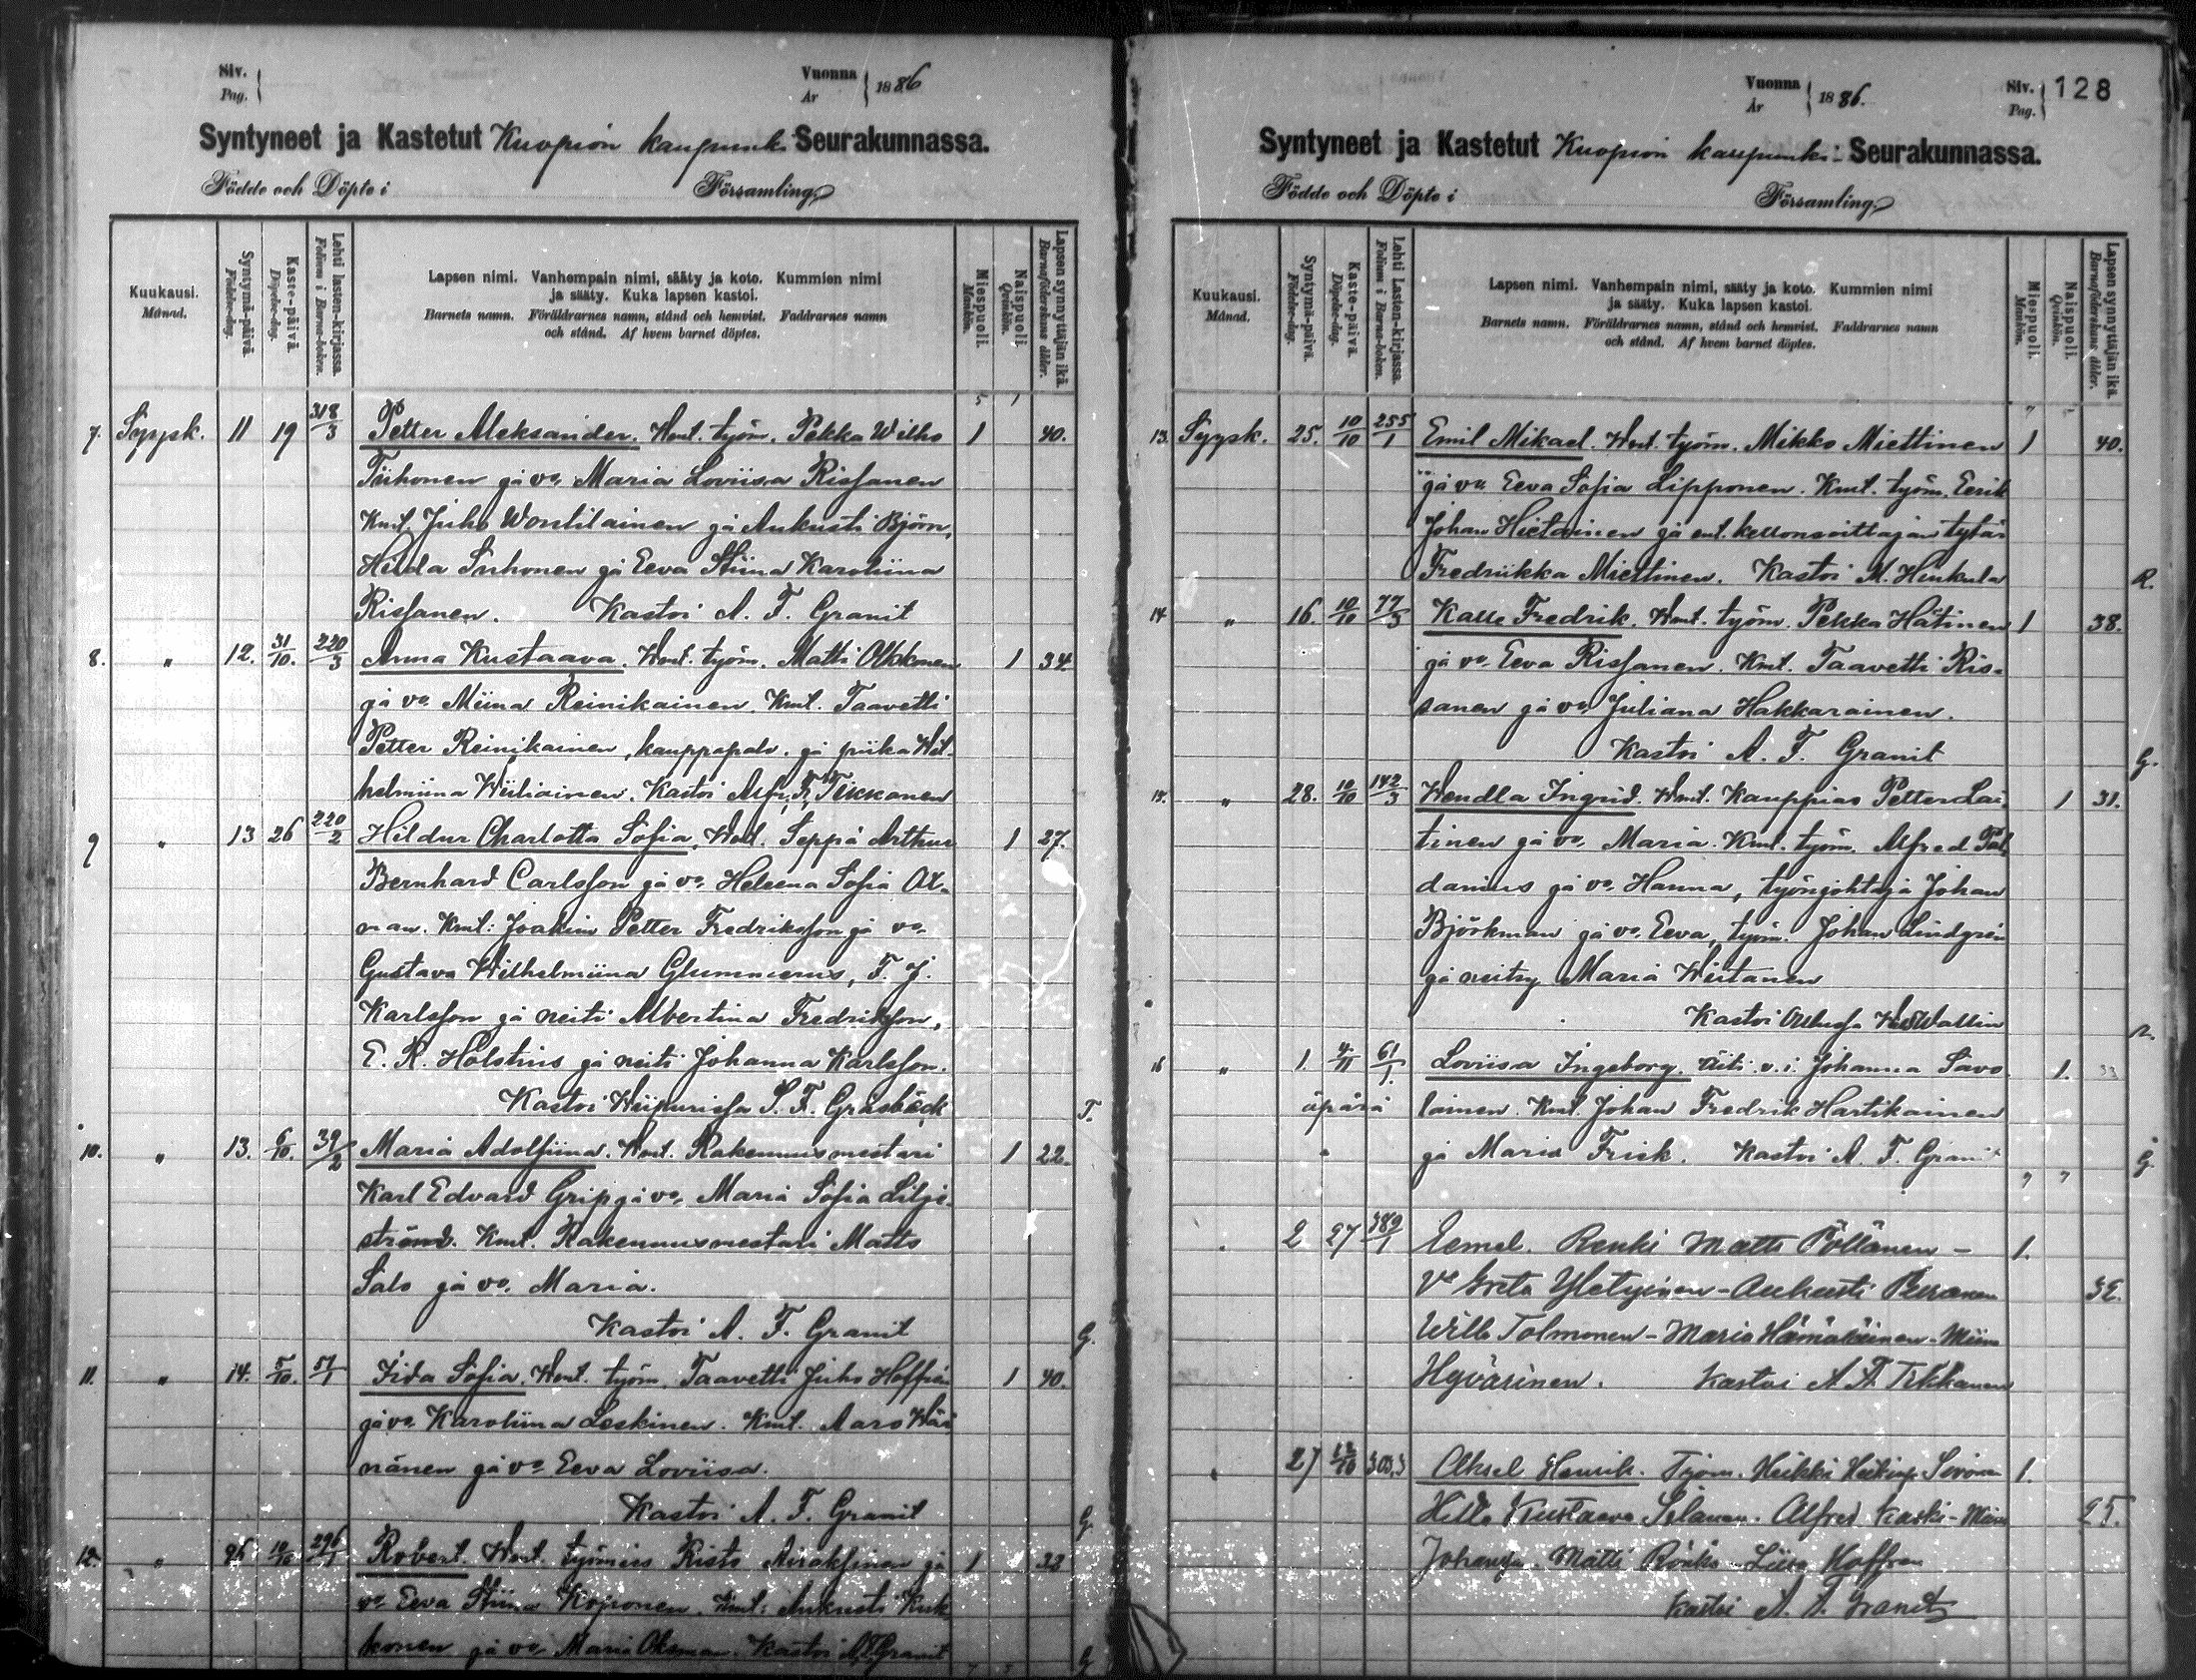 Siv.
Pag.
Vuonna
År
1886
Syntyneet ja Kastetut Kuopion kaupunki Seurakunnassa.
Födde och Döpte i Församling.
Kuukausi.
Månad.
Syntymä-päivä.
Födelse-dag.
Kaste-päivä.
Döpelse-dag.
Lehti lasten-kirjassa.
Folium i Barna-boken.
Lapsen nimi. Vanhempain nimi, sääty ja koto. Kummien nimi
ja sääty. Kuka lapsen kastoi.
Barnets namn. Föräldrarnes namn, stånd och hemvist. Faddrarnes namn
och stånd. Af hvem barnet döptes.
Miespuoli.
Mankön.
Naispuoli.
Qvinkön.
Lapsen synnyttäjän ikä.
Barnaföderskans ålder.
7. Syysk. 11 19 318/3 Petter Aleksander. Wmt. työm. Pekka Wilho 1 40.
Tiihonen ja vo. Maria Loviisa Rissanen
Kmt. Juho Wontilainen ja Aukusti Björn,
Hilda Inhonen ja Eeva Stiina Karoliina
Rissanen. Kastoi A. F. Granit
8. " 12. 31/10. 220/3 Anna Kustaava. Wmt. työm. Matti Olkkonen 1 34
ja vo. Miina Reinikainen. Kmt. Taavetti
Petter Reinikainen, kauppapalv. ja piika Wil-
helmiina Wiiliäinen. Kastoi Alfr. F. Tikkanen
9 " 13 26 220/2 Hildur Charlotta Sofia. Wmt. Seppä Arthur 1 27.
Bernhard Carlsson ja vo. Heleena Sofia Ot-
man. Kmt: Joakim Petter Fredriksson ja vo.
Gustava Wilhelmiina Glummerus, F. J.
Karlsson ja neiti Albertina Fredriksson,
E. R. Holstius ja neiti Johanna Karlsson.
Kastoi Wiipurissa S. F. Gräsbäck T.
10. " 13. 6/10. 39/2 Maria Adolfiina. Wmt. Rakennusmestari 1 22.
Karl Edvard Grip ja vo. Maria Sofia Lilje-
ström. Kmt. Rakennusmestari Matts
Salo ja vo. Maria.
Kastoi A. F. Granit G.
11. " 14. 5/10. 51/1 Iida Sofia. Wmt. työm. Taavetti Juho Hoffrén 1 40.
ja vo. Karoliina Leskinen. Kmt. Aaro Wäi
nänen ja vo. Eeva Loviisa.
Kastoi A. F. Granit G
12. " 26 10/10 296/1 Robert. Wmt. työmies Risto Airaksinen ja 1 33
vo. Eeva Stiina Koponen. Kmt: Aukusti Kuk
konen ja vo. Maria Oksman. Kastoi A. F. Granit G
Vuonna
År
1886.
Siv.
Pag.
128
Syntyneet ja Kastetut Kuopion kaupunki- Seurakunnassa.
Födde och Döpte i Församling.
Kuukausi.
Månad.
Syntymä-päivä.
Födelse-dag.
Kaste-päivä.
Döpelse-dag.
Lehti Lasten-kirjassa.
Folium i Barna-boken.
Lapsen nimi. Vanhempain nimi, sääty ja koto. Kummien nimi
ja sääty. Kuka lapsen kastoi.
Barnets namn. Föräldrarnes namn, stånd och hemvist. Faddrarnes namn
och stånd. Af hvem barnet döptes.
Miespuoli.
Mankön.
Naispuoli.
Qvinkön.
Lapsen synnyttäjän ikä.
Barnaföderskans ålder.
13. Syysk. 25. 10/10 255/1 Emil Mikael. Wmt. työm. Mikko Miettinen 1 40.
ja vo. Eeva Sofia Lipponen. Kmt. työm. Eerik
Johan Hietainen ja ent. kellonsoittajan tytär
Fredriikka Miettinen. Kastoi M. Hinkula R.
14 " 16. 10/10 77/3 Kalle Fredrik. Wmt. työm. Pekka Hätinen 1 38.
ja vo. Eeva Rissanen. Kmt. Taavetti Ris-
sanen ja vo. Juliana Hakkarainen.
Kastoi A. F. Granit G.
15. " 28. 10/10 142/3 Wendla Ingrid. Wmt. Kauppias Petter Lai- 1 31.
tinen ja vo. Maria. Kmt. työm. Alfred Pal
danius ja vo. Hanna, työnjohtaja Johan
Björkman ja vo. Eeva, työm. Johan Lindgrén
ja neitsy Maria Wiitanen
Kastoi Wallin
16 " 1. 4/11 61/1. Loviisa Ingeborg. Äiti: v. i. Johanna Savo 1. 33
äpärä lainen. Kmt. Johan Fredrik Hartikainen
ja Maria Frisk. Kastoi A. F. Granit G
2 27 389/1 Eemel. Renki Matti Pöllänen - 1.
Vo Greta Yletyinen - Auhusti Puranen 32.
Wille Tolmonen - Maria Hämäläinen - Miina
Hyvärinen. Kastoi A. F. Tikkanen
27 12/10 303,3 Aksel Henrik. Työm. Heikki Sivonen 1.
Hilda Kustaava Silanen. Alfred Kaski - Miina 25.
Matti Rönkö - Liisa Hoffren
Kastoi A. F. Granit